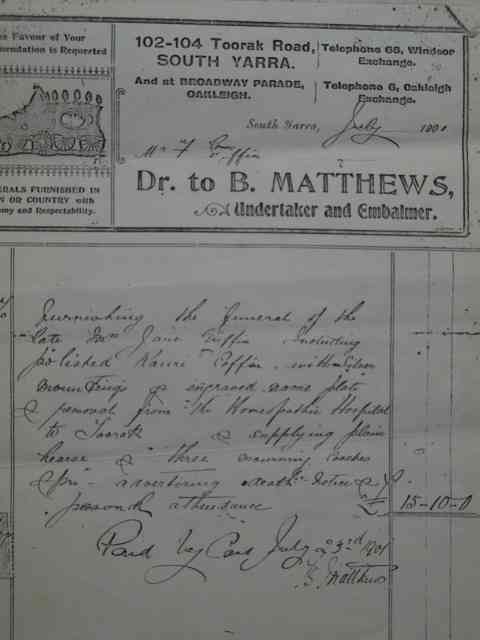 e Favour of Your
mendation is Requested
ERALS FURNISHED IN
N OR COUNTRY with
my and Respectability.
102-104 Toorak Road,
SOUTH YARRA.
And at BROADWAY PARADE,
OAKLEIGH.
Telephone 68, Windsor
Exchange.
Telephone 6, Oakleigh
Exchange.
South Yarra, July 1901
Mr F Griffin
Dr. to B. MATTHEWS,
Undertaker and Embalmer.
Furnishing the funeral of the
late Mrs Jane Griffin Including
polished Kauri Coffin with Silver
mountings & engraved name plate
& removal from the Homeopathic Hospital
to Toorak & supplying plain
hearse & three mourning coaches
& advertising death notice &
personal attendance £ 15-10-0
Paid by July 23rd 1901
B Matthews